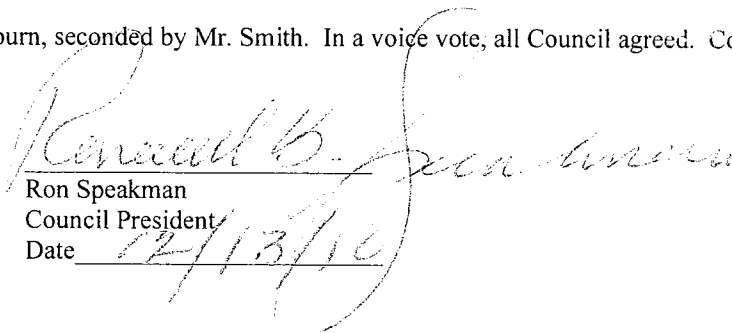 ourn, seconded by Mr. Smith. In a voice vote, all Council agreed. Co
Ronald B. Speakman
Ron Speakman
Council President
Date 12/13/10